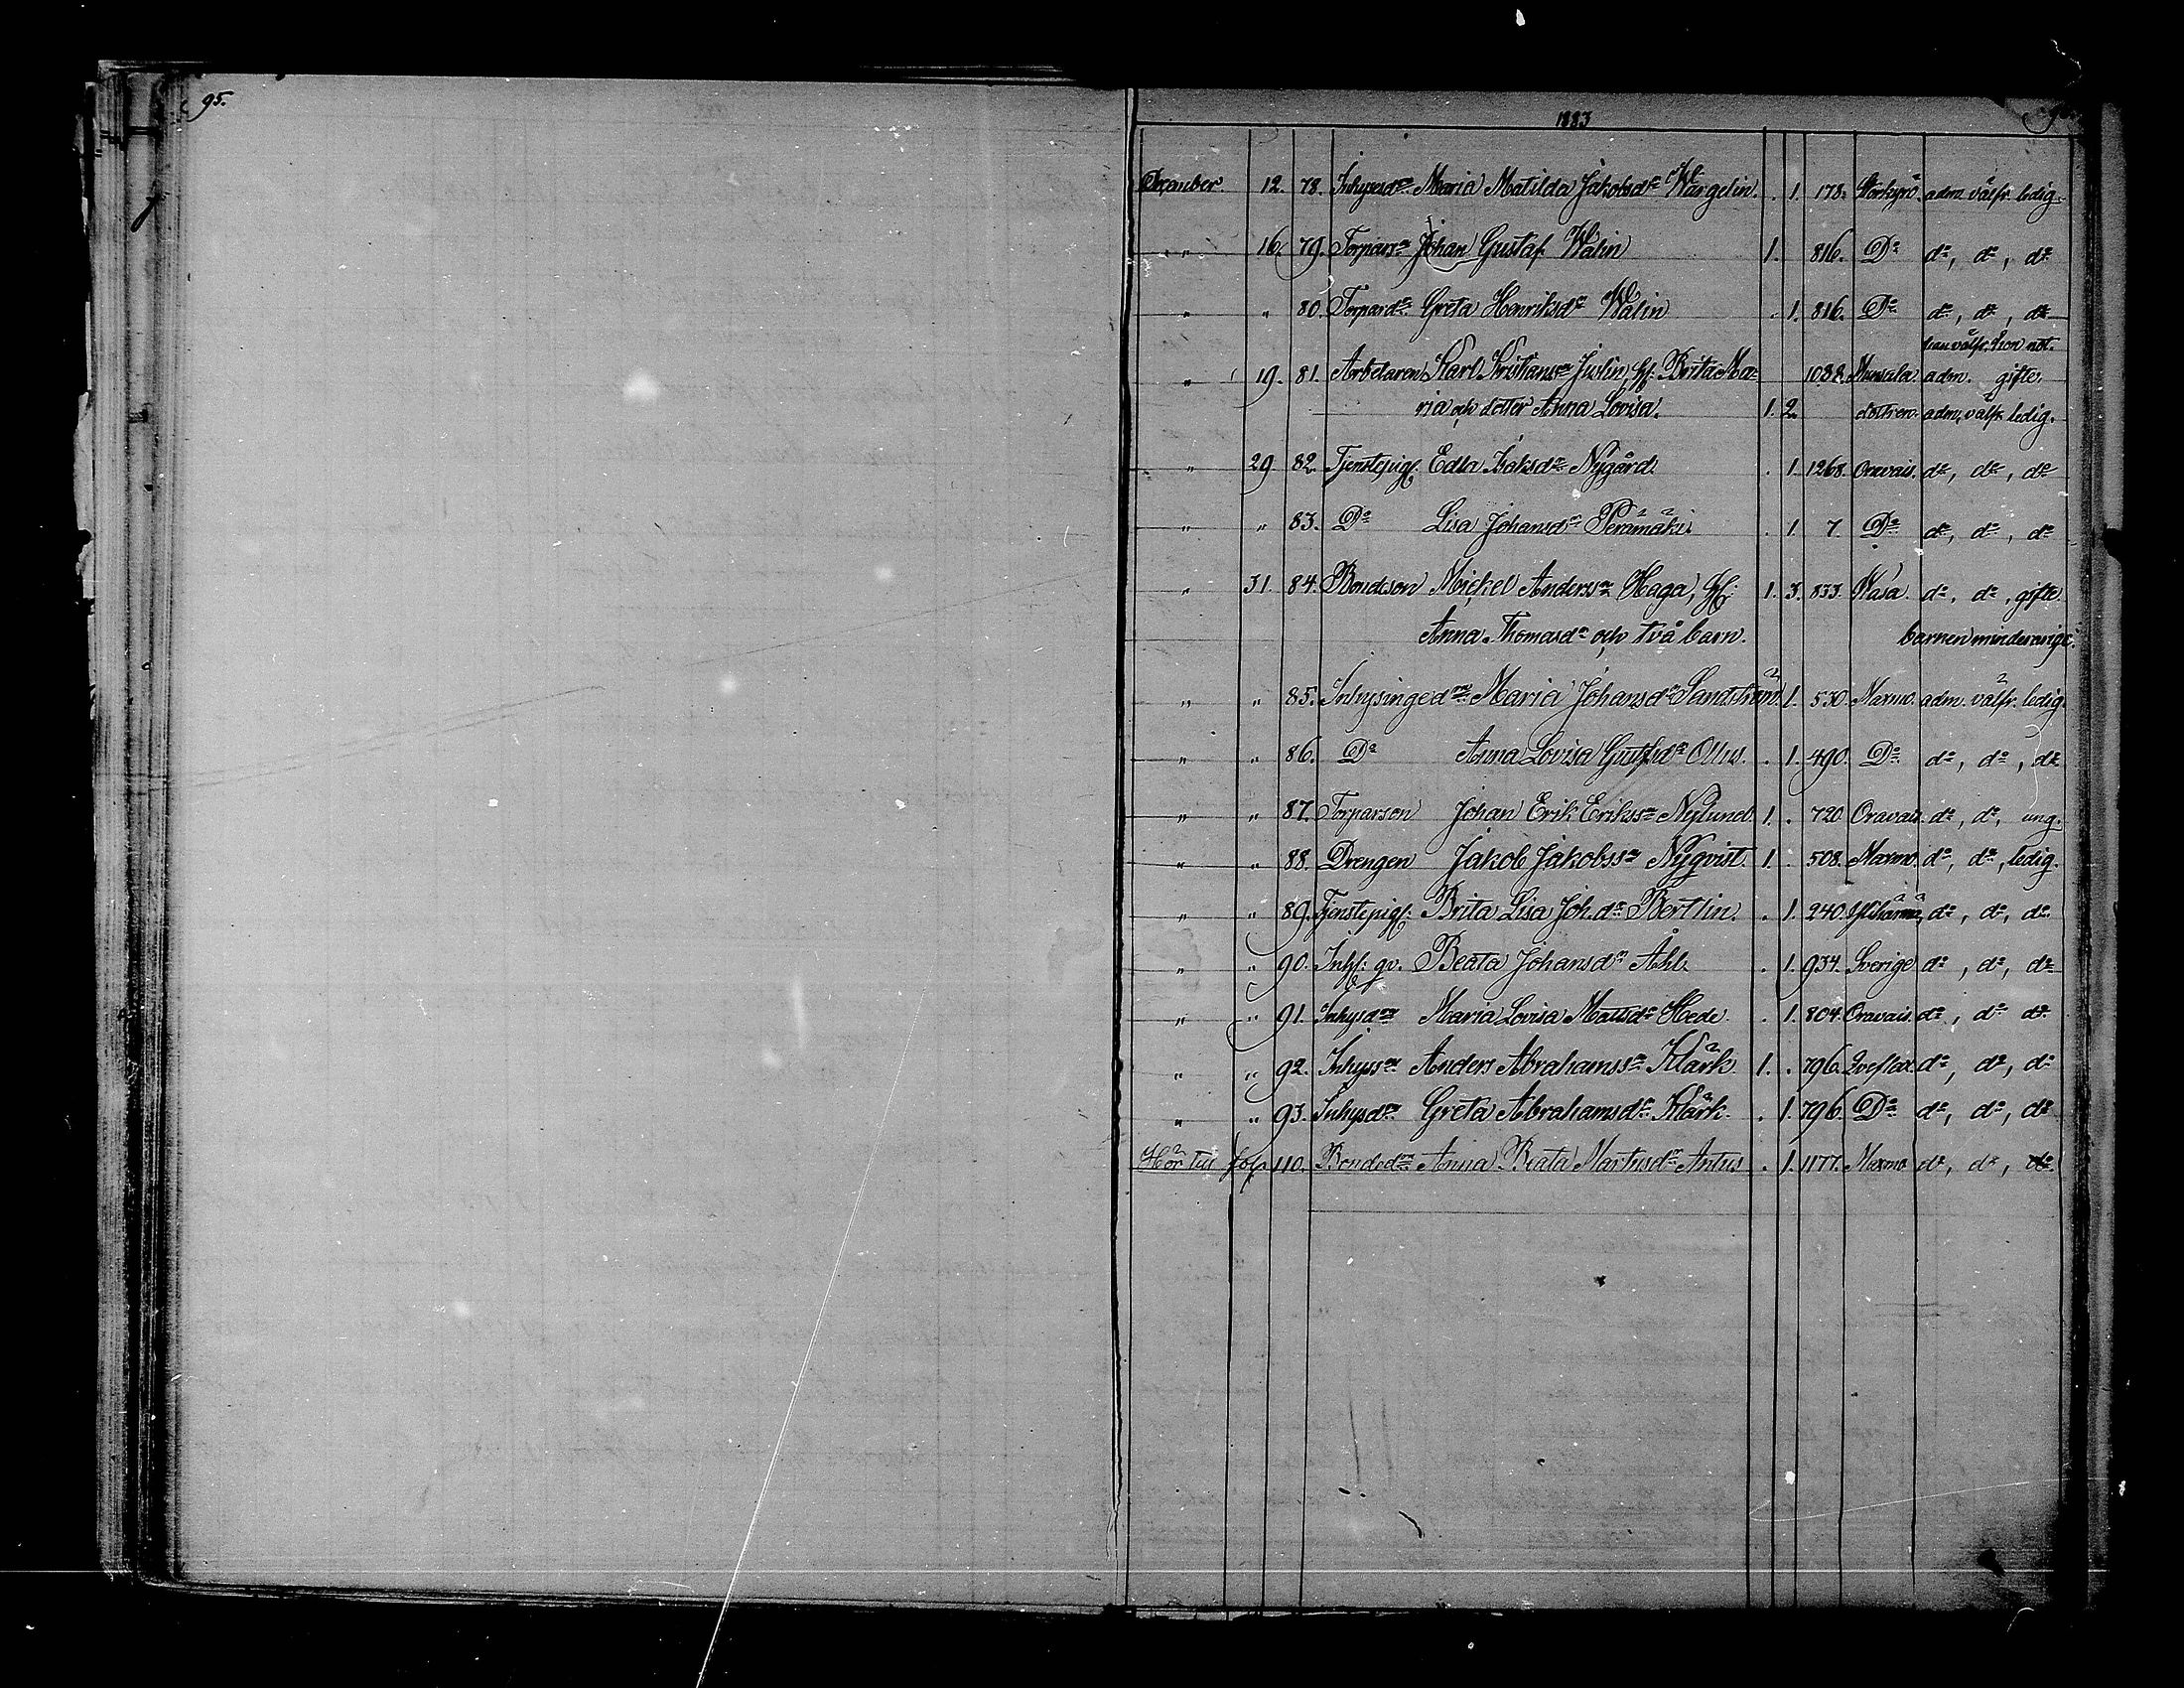 95.
1883
December 12. 78. Inhysesdr Maria Matilda Jakobsdr Wärgelin. . 1. 178. Storkyrö. adm. välfr. ledig.
" 16. 79. Torparsn Johan Gustaf Wälin 1. 816. Do do, do, do
" " 80. Torpardr Greta Henriksdr Wälin . 1. 816. Do do, do, do
han välfr. hon not.
" 19. 81. Arbetaren Karl Kristianssn Juslin, h: Brita Ma- 1038. Munsala. adm. gifte.
ria och dotter Anna Lovisa. 1. 2. dottren. adm, välfr. ledig.
" 29 82. Tjenstepig. Edla Isaksdr Nygård. . 1. 1268. Oravais. do, do, do
" " 83. Do Lisa Johansdr Perämäki. . 1. 7. Do do, do, do
" 31. 84. Bondeson Mickel Anderssn Haga, h: 1. 3. 833. Wasa. do, do, gifte.
Anna Thomasdr och två barn. barnen minderårige.
" " 85. Inhysingedr Maria Johansdr Sandström . 1. 530. Maxmo. adm. välfr. ledig.
" " 86. Do Anna Lovisa Gustfsdr Ollus. . 1. 490. Do do, do, do
" " 87. Torparson Johan Erik Erikssn Nylund. 1. . 720 Oravais. do, do, ung.
" " 88. Drengen Jakob Jakobssn Nyqvist. 1. . 508. Maxmo. do, do, ledig.
" " 89. Tjenstepig: Brita Lisa Joh.dr Bertlin. . 1. 240. Ylihärmä, do, do, do
" " 90. Inh: qv. Beata Johansdr Åhl. . 1. 934. Sverige do, do, do
" " 91. Inhysdr Maria Lovisa Mattsdr Hede. . 1. 804. Oravais. do, do do
" " 92. Inhyssn Anders Abrahamssn Klärk. 1. . 796. Qveflax. do, do, do
" " 93. Inhysdr Greta Abrahamsdr Klärk. . 1. 796. Do do, do, do
Hör till fol. 110. Bondedr Anna Beata Martisdr Antus . 1. 1177. Maxmo do, do, do.